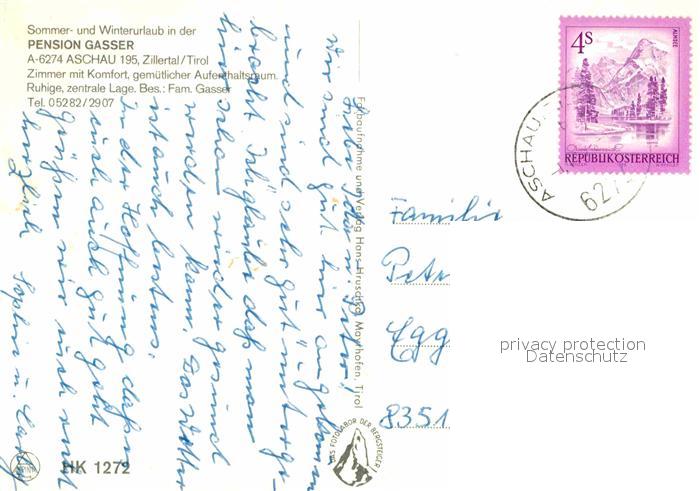 Sommer- und Winterurlaub in der
PENSION GASSER
A-6274 ASCHAU 195, Zillertal/Tirol
Zimmer mit Komfort, gemütlicher Aufenthaltsraum.
Ruhige, zentrale Lage. Bes.: Fam. Gasser
Tel. 05282/2907
wir sind gut hier angekommen
und sind sehr gut unterge-
bracht. Ich glaube daß man
hier schon wieder gesund
werden kann. Das Wetter
ist auch bestens.
In der Hoffnung daß es
euch auch gut geht
grüßen wir euch
herzlich
Farbaufnahme und Verlag Hans Hruschka, Mayrhofen, Tirol
DAS FOTOLABOR DER BERGSTEIGER
HK 1272
4S
ALMSEE
REPUBLIK ÖSTERREICH
ASCHAU
627
Familie
Petr
Egg
8351
privacy protection
Datenschutz